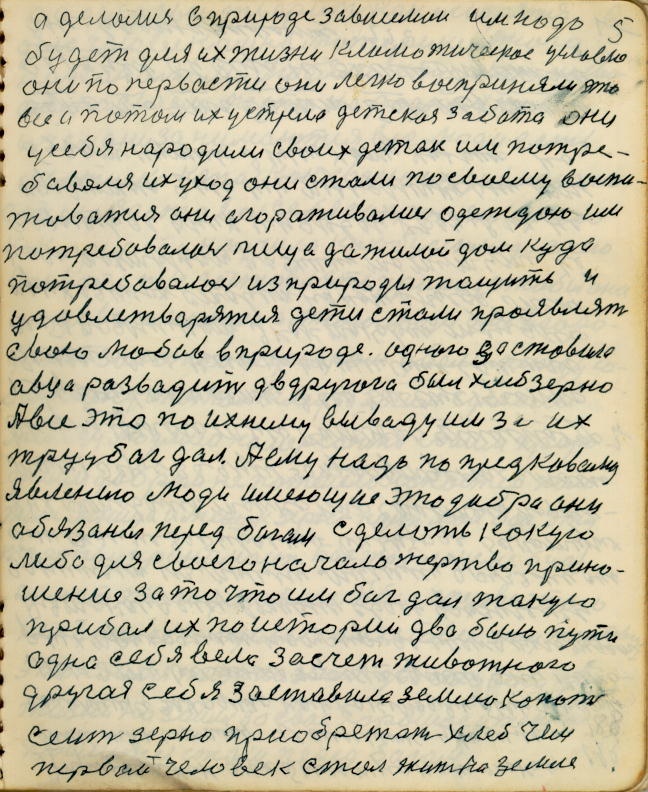 5
а делалия в природе зависимой им надо
будет для их жизни климотическое условие
они по первасти они легко восприняли это
все а потом их устрела детская забота они
у себя народили своих деток им потре-
баволя их уход они стали по своему воспи-
товатия они агораживалися одеждою им
потребавалоя пища да жилой дом куда
потребавалоя из природы тащить и
удовлетварятия дети стали проявлят
свою любов в природе. одного заставила
авца развадит двдругога был хлеб зерно
А все это по ихнему вываду им за их
труу бог дал. А ему надь по предковаму
явлению люди имеющие это добра они
обязаны перед богам сделоть кокую
либо для своего начало жертво прино-
шение за то что им бог дал такую
прибал их по истории два быль пути
одна себя вела засчет животного
другая себя заставила землю копот
сеит зерно приобретат хлеб чем
первай человек стал жит на земле